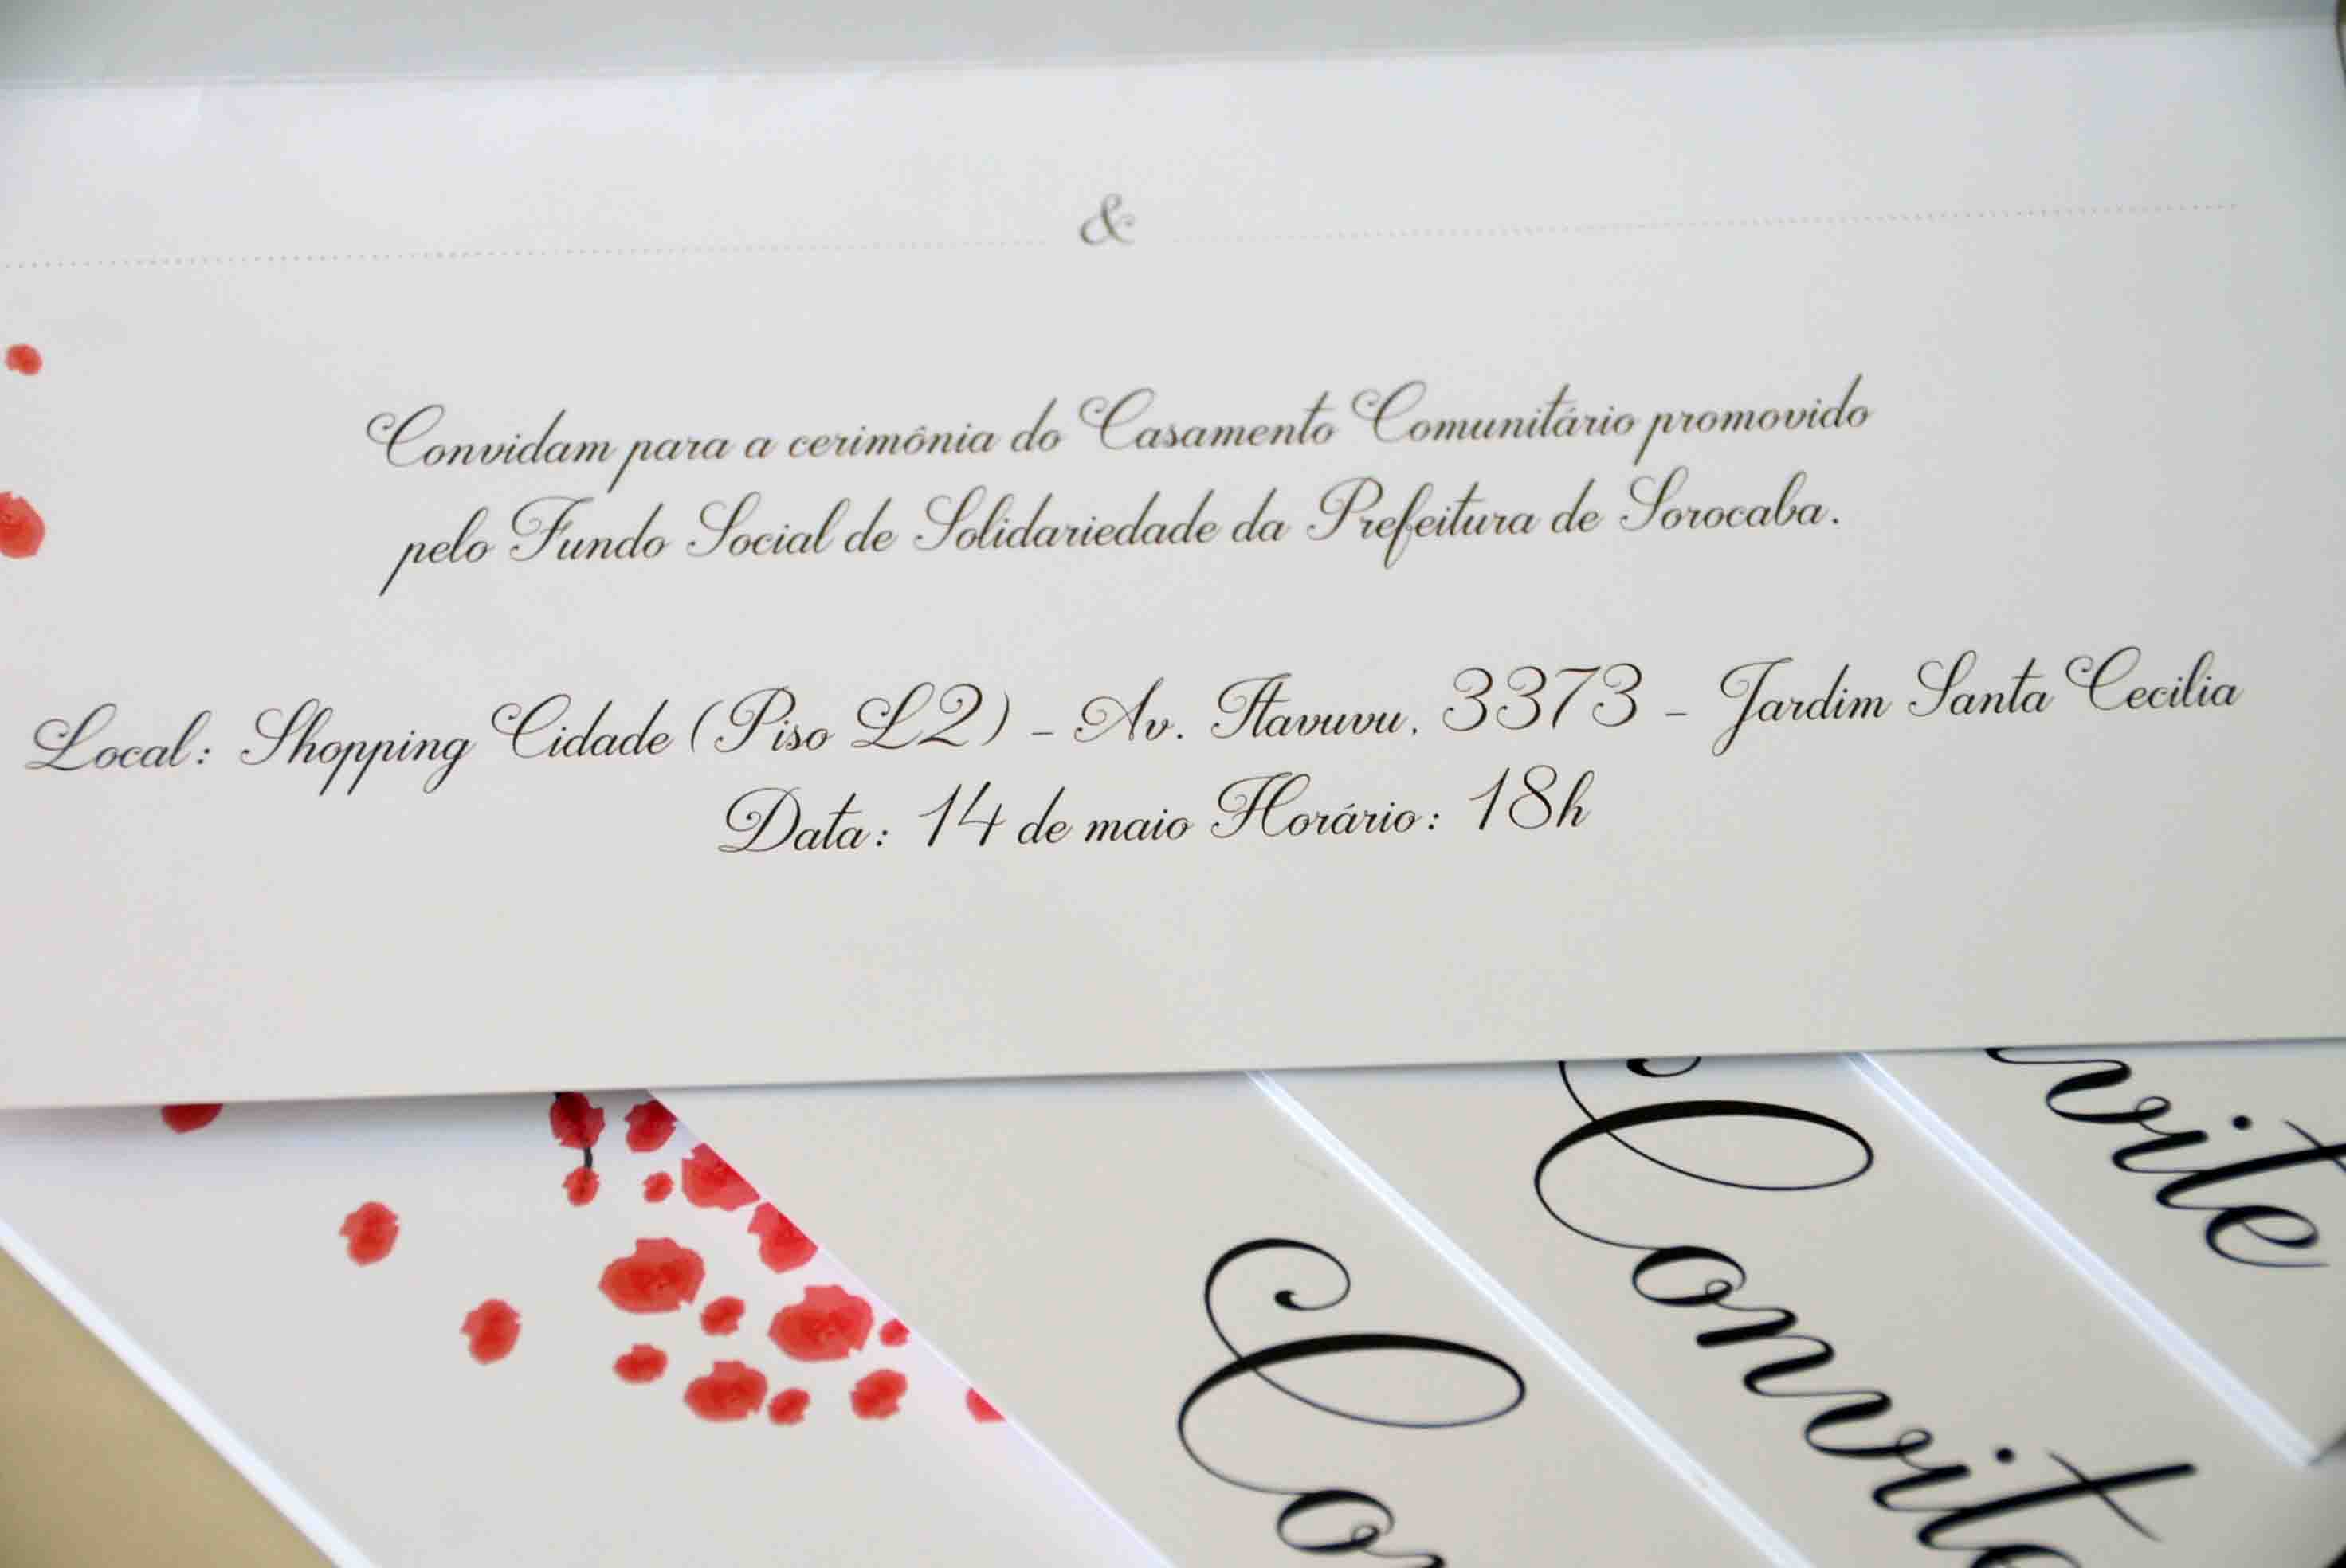 &
Convidam para a cerimônia do Casamento Comunitário promovido
pelo Fundo Social de Solidariedade da Prefeitura de Sorocaba.
Local: Shopping Cidade (Piso L2) - Av. Itavuvu, 3373 - Jardim Santa Cecilia
Data: 14 de maio Horário: 18h
Co
Convite
vite